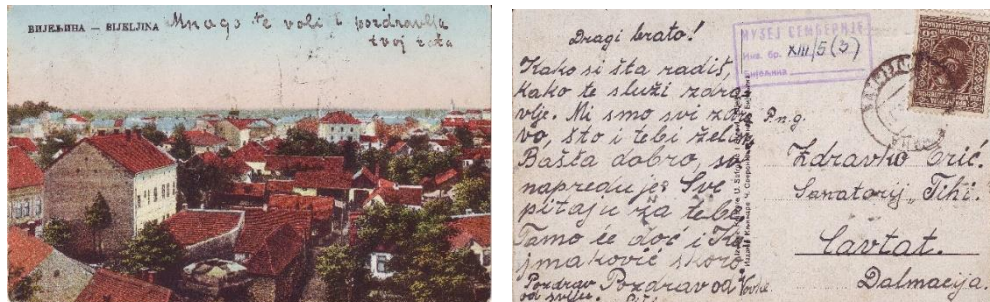 ВИЈЕЉИНА — BIJELJINA
Mnogo te voli i pozdravlja
tvoj
Dragi brato!
Kako si šta radiš,
kako te služi zdrav
vlje. Mi smo svi zdra
vo, što i tebi želim,
Bašta dobro,
napreduje. Sve
pitaju za tebe.
Tamo će doć i Ka
jmaković skoro.
Pozdrav Pozdrav od
od sviju
МУЗЕЈ СЕМБЕРИЈЕ
Инв. бр. XIII/5 (3)
Бијељина
P.n.g.
Zdravko Orić.
Sanatorij „Tihi.
Cavtat.
Dalmacija.